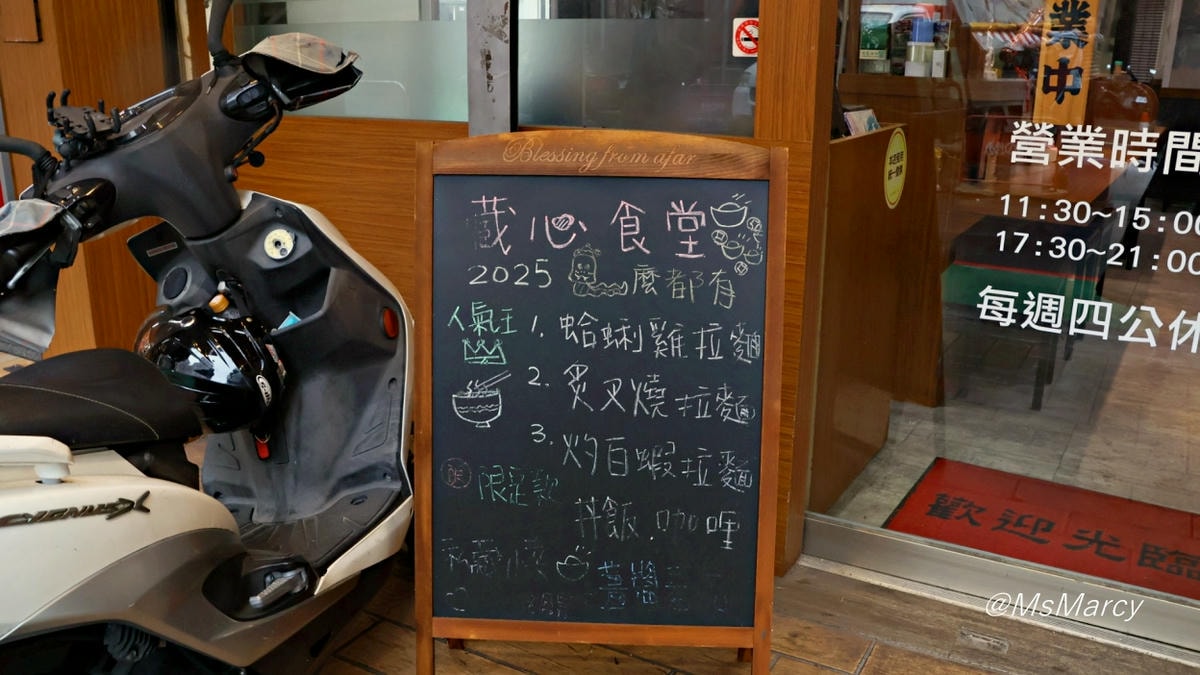 Blessing from afar
藏心食堂
2025 麼都有
人氣王
1. 蛤蜊雞拉麵
2. 炙叉燒拉麵
3. 灼白蝦拉麵
限定款
丼飯.咖哩
業中
營業時間
11:30~15:00
17:30~21:00
每週四公休
歡迎光臨
CYGNUS X
@MsMarcy